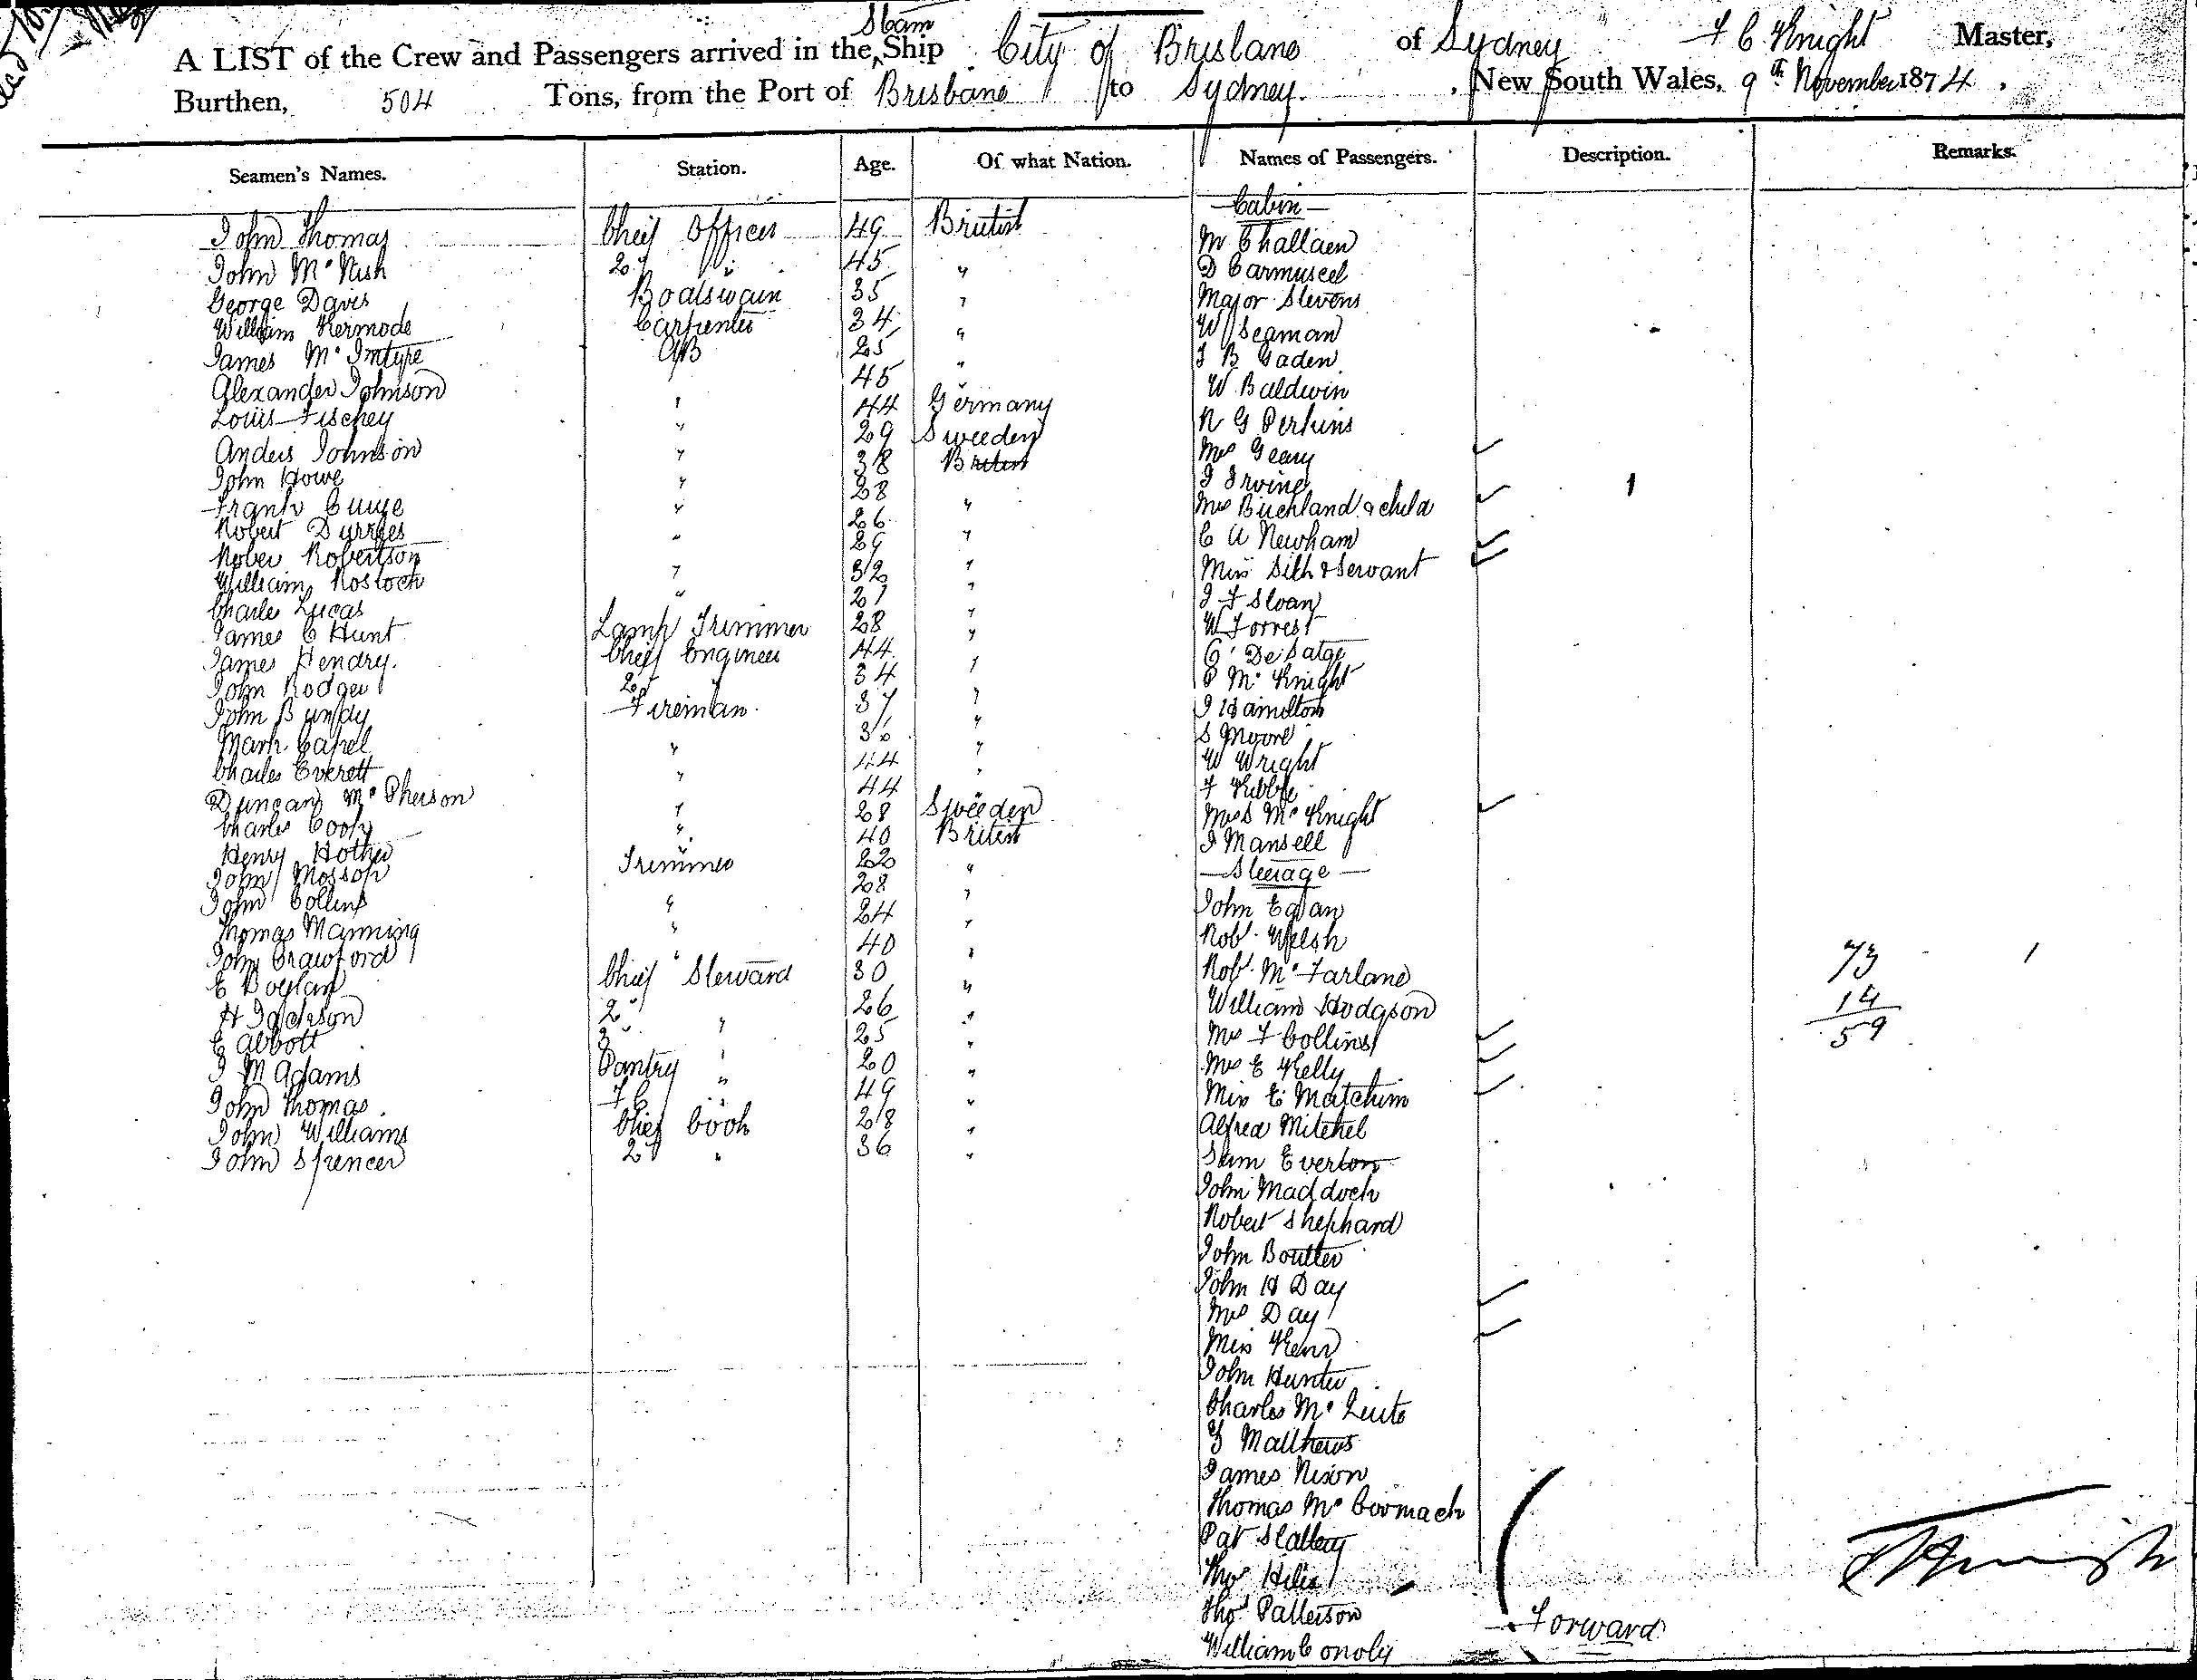 Steam
A LIST of the Crew and Passengers arrived in the Ship City of Brisbane of Sydney F C Knight Master,
Burthen, 504 Tons, from the Port of Brisbane to Sydney. New South Wales, 9th November 1874,
Seamen's Names. Station. Age. Of what Nation. Names of Passengers. Description. Remarks.
Cabin
John Thomas Chief Officer 49 British
John Mc Nish 2d " 45 "
George Davis Boatswain 35 "
William Kermode Carpenter 34 "
James Mc Intyre AB 25 "
Alexander Johnson 45 "
Louis Fischey " 44 Germany
Anders Johnson " 29 Sweeden
John Howe " 38 British
Frank " 28 "
Robert " 26 "
Rober Robertson " 29 "
William Rostock " 32 "
Charles Lucas " 21 "
James C Hunt Lamp Trimmer 28 "
James Hendry. Chief Engineer 44 "
John Rodger 2d " 34 "
John Bundy Fireman 37 "
Mark Capel " 36 "
Charles Everett " 44 "
Duncan Mc Pherson " 44 "
Charles Cook " 28 Sweeden
Henry Hother " 40 British
John Mossop Trimmer 22 "
John Collins " 28 "
Thomas Manning " 24 "
John Crawford " 40 "
E Boylan Chief Steward 30 "
H Jackson 2d " 26 "
E Abbott 3 " 25 "
J M Adams Pantry " 20 "
John Thomas F C " 49 "
John Williams Chief Cook 28 "
John Spencer 2d " 36 "
M Challaen
D Carmuscel
Major Stevens
W Seaman
J B Gaden
W Baldwin
R G Perkins
Mrs Geary
J Irving
Mrs Buckland & child
C A Newham
Miss Silk & Servant
J F Sloan
W Forrest
C De Satge
P Mc Knight
J Hamilton
S Moore
W Wright
F Kibble
Mrs Mc Knight
J Mansell
Steerage
John Egan
Robt Welsh
Robt Mc Farlane
William Hodgson
Mrs F Collins
Mrs E Kelly
Miss E Matchim
Alfred Mitchel
Sam Everton
John Maddock
Robert Shephard
John Boulter
John H Day
Mrs Day
Miss Kenr
John Hunter
Charles Mc
G Matthews
James Nixon
Thomas Mc Coomack
Pat Slattery
Thos
Thos Patterson
William Conoly
1
73 1
14
59
Forward